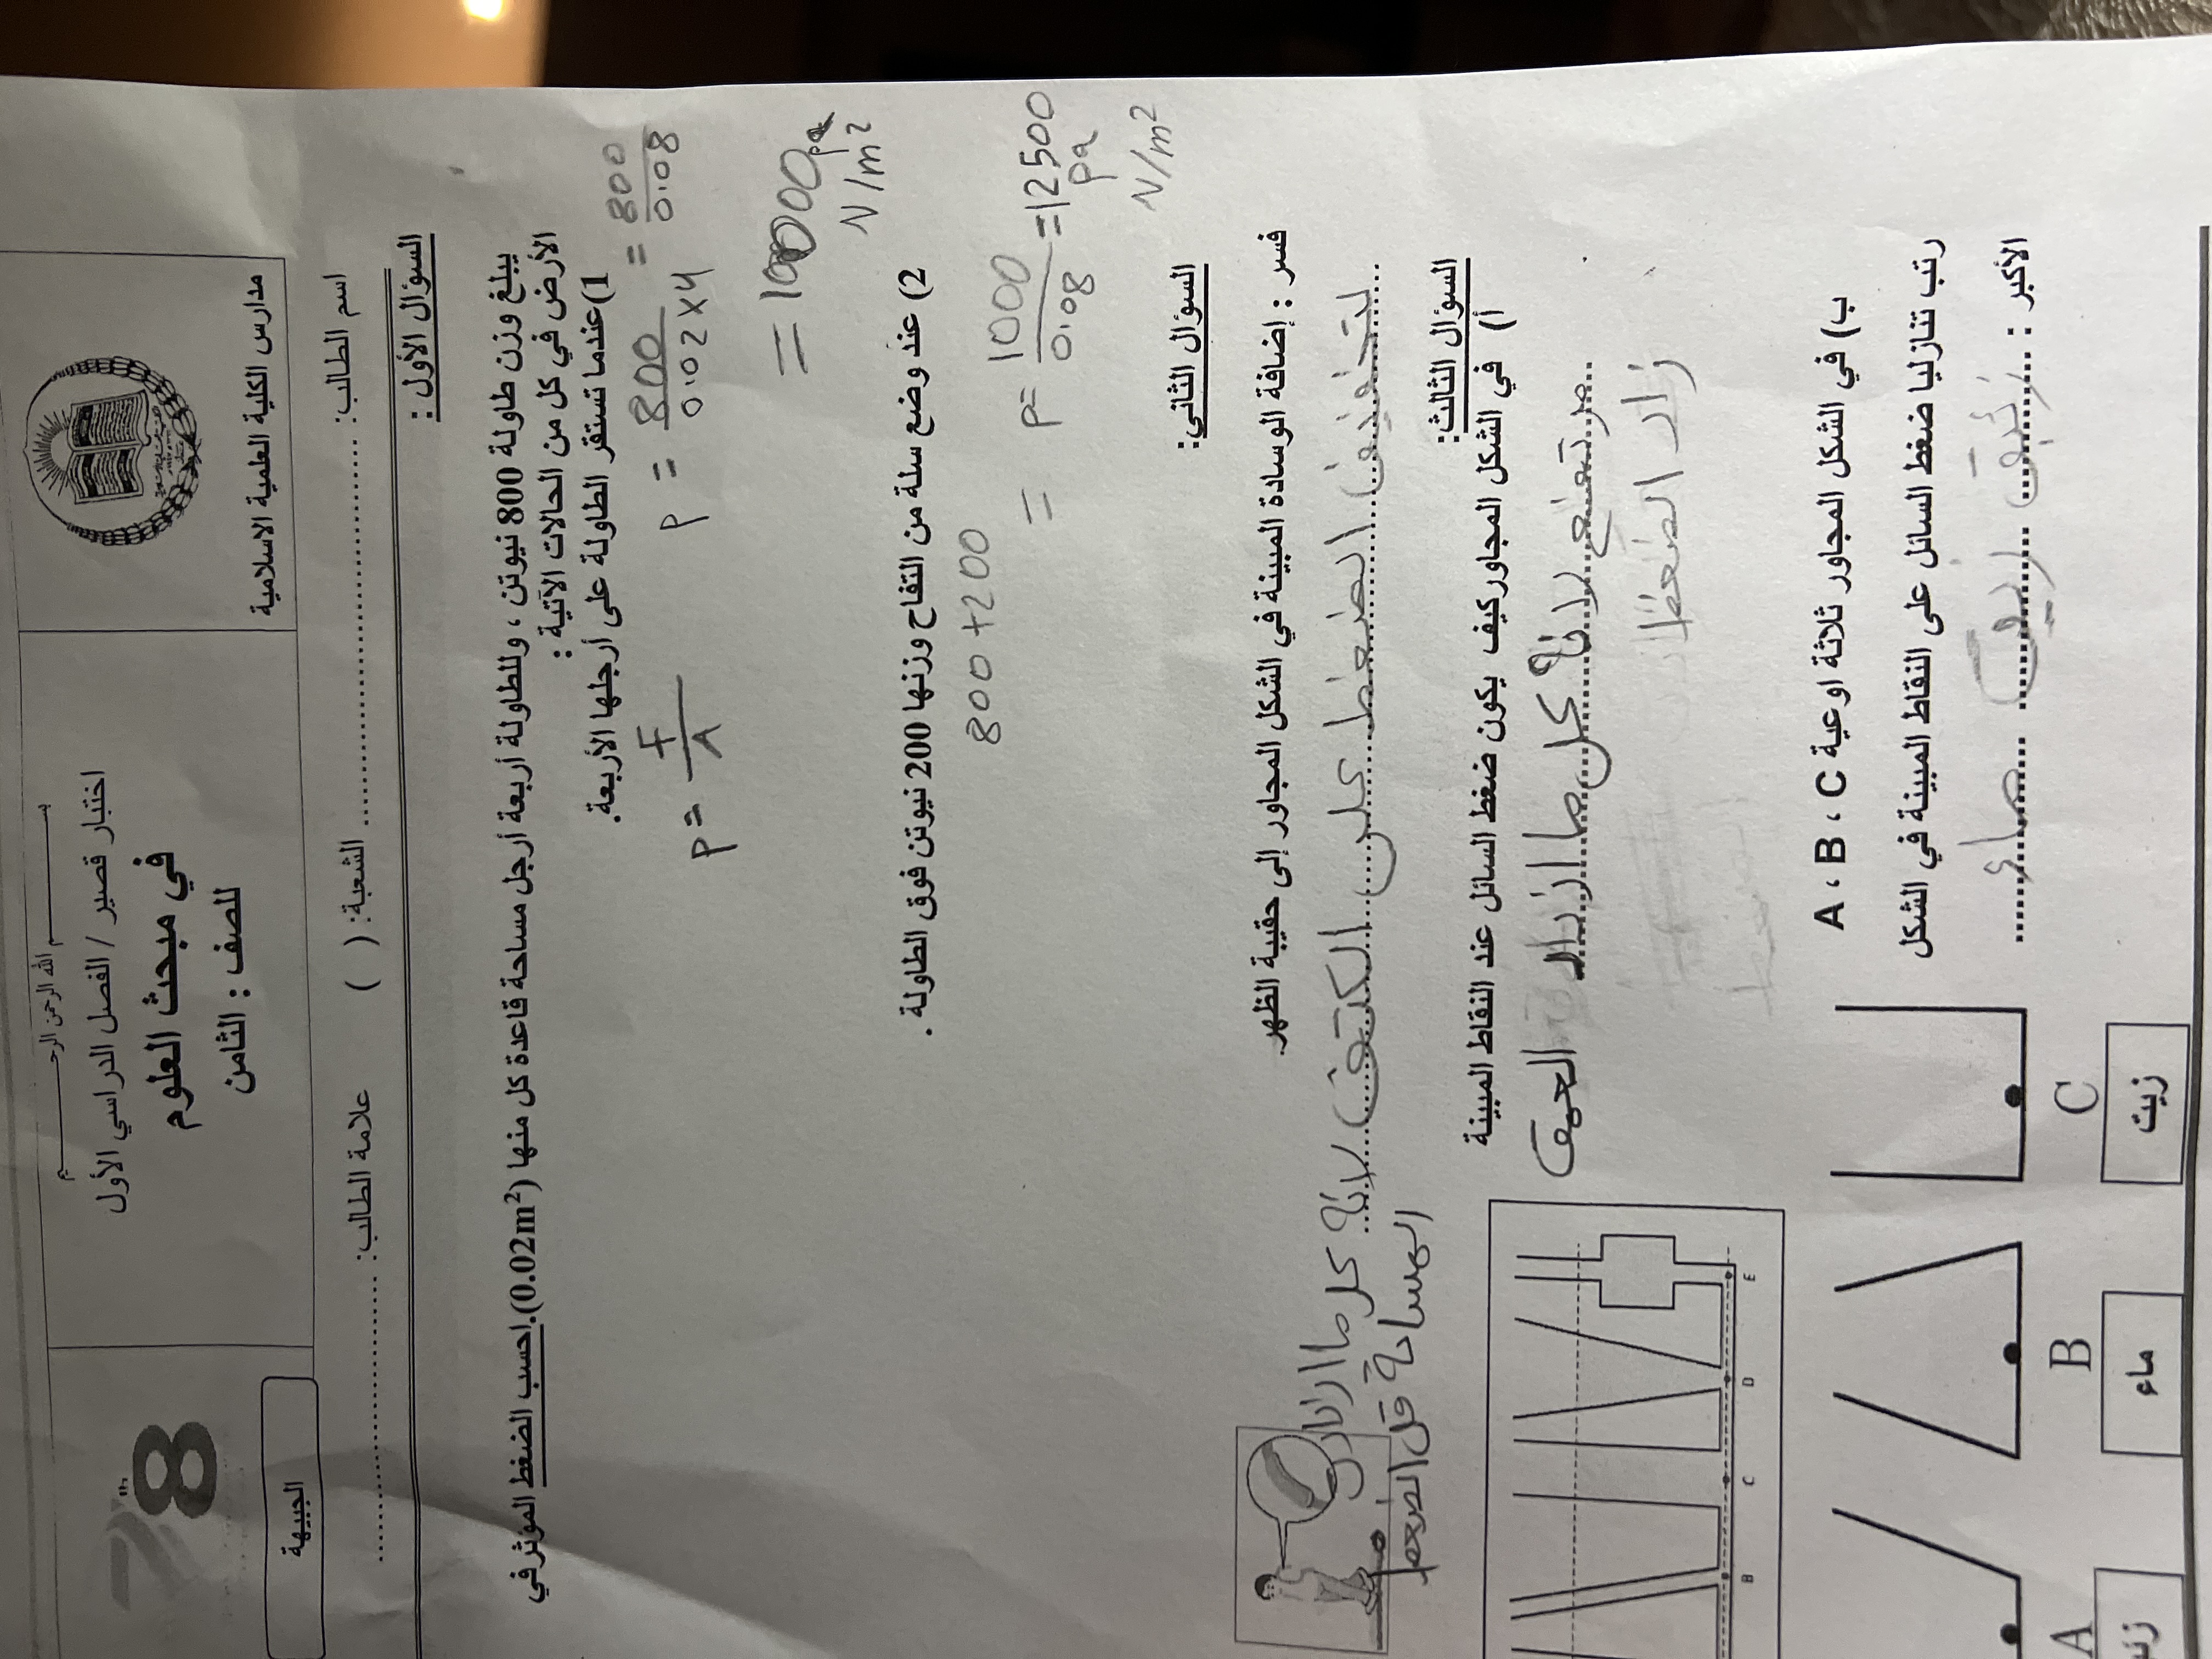 بســـــــم الله الرحمن الرحـــــــيم
مدارس الكلية العلمية الاسلامية
اختبار قصير / الفصل الدراسي الأول
في مبحث العلوم
للصف : الثامن
78
الجبيهة
اسم الطالب: .......................................... الشعبة: ( ) علامة الطالب: ..............................
السؤال الأول :
يبلغ وزن طاولة 800 نيوتن ، وللطاولة أربعة أرجل مساحة قاعدة كل منها (0.02m²).احسب الضغط المؤثر في
الأرض في كل من الحالات الآتية :
1)عندما تستقر الطاولة على أرجلها الأربعة.
P = F/A P = 800/0.02x4 = 800/0.08
= 10000 pa
N/m²
2) عند وضع سلة من التفاح وزنها 200 نيوتن فوق الطاولة .
800+200
= P= 1000/0.08 =12500
pa
N/m²
السؤال الثاني:
فسر : إضافة الوسادة المبينة في الشكل المجاور إلى حقيبة الظهر.
لتخفيف الضغط على الكتف لانه كل ما ازادت
المساحة قل الضغط
السؤال الثالث:
أ) في الشكل المجاور كيف يكون ضغط السائل عند النقاط المبينة
مرتفع لانه كل ما ازداد العمق
زاد الضغط
B C D E
ب) في الشكل المجاور ثلاثة اوعية A ، B ، C
رتب تنازليا ضغط السائل على النقاط المبينة في الشكل
الأكبر : زئبق زيت ماء
A B C
ماء
زيت